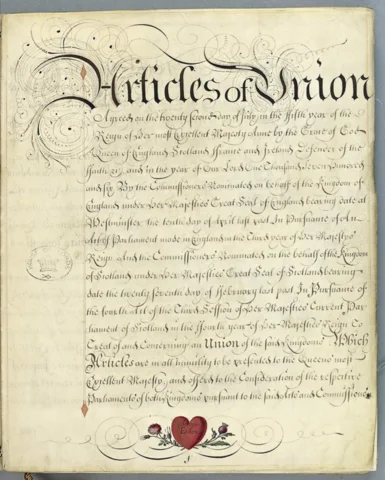 Articles of Union
Agreed on the twenty second day of July in the ffifth year of the
Reign of Her most Excellent Majesty Anne by the Grace of God
Queen of England Scotland ffrance and Ireland Defender of the
ffaith &c and in the year of Our Lord One thousand Seven hundred
and Six By the Commissioners Nominated on behalf of the Kingdom of
England under Her Majesties Great Seal of England bearing date at
Westminster the tenth day of April last past In Pursuance of An
Act of Parliament made in England in the third year of Her Majesties
Reign And the Commissioners Nominated on the behalf of the Kingdom
of Scotland under Her Majesties Great Seal of Scotland bearing
date the twenty seventh day of ffebruary last past In Pursuance of
the fourth Act of the third Session of Her Majesties Current Par
liament of Scotland in the ffourth year of Her Majesties Reign To
Treat of and Concerning an Union of the said Kingdoms Which
Articles are in all humility to be presented to the Queens most
Excellent Majesty and offered to the Consideration of the respective
Parliaments of both Kingdoms pursuant to the said Acts and Commissions